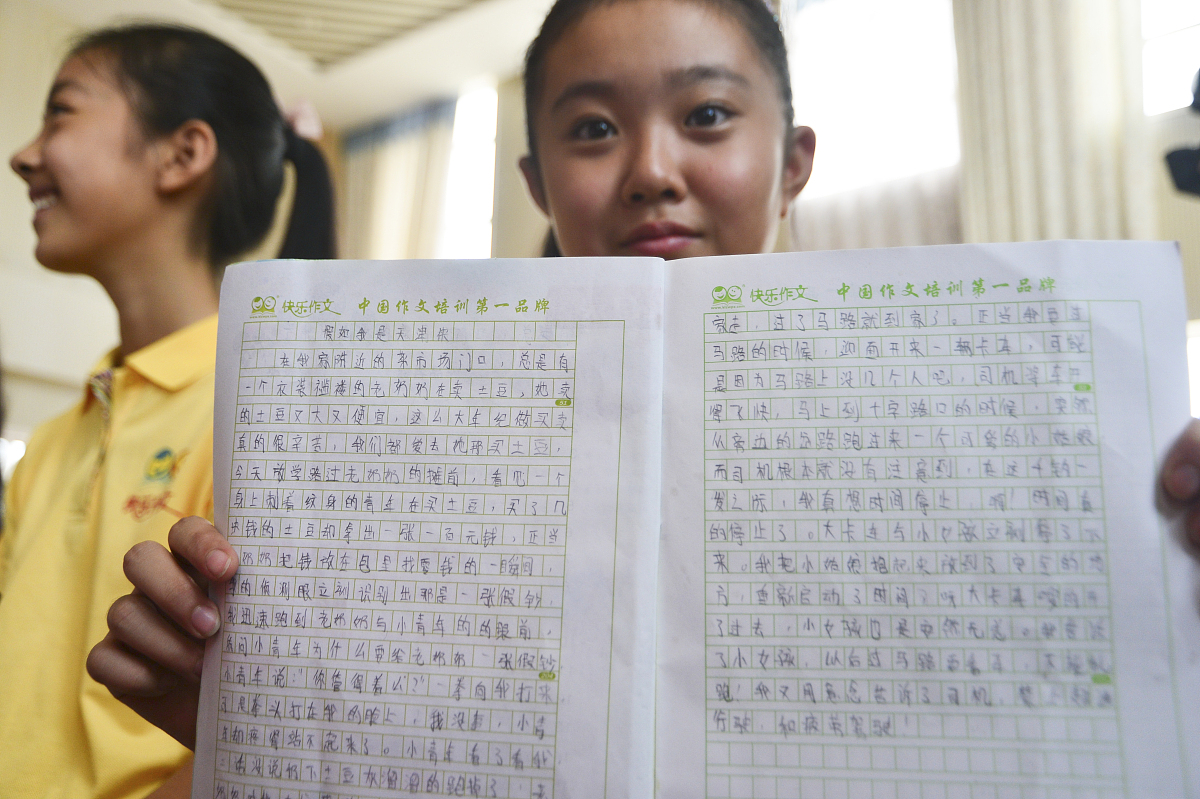 快乐作文 中国作文培训第一品牌
假如我是天
在我家附近的菜市场门口，总是有
一个衣装褴褛的老奶奶在卖土豆，她卖
的土豆又大又便宜，这么大年纪做买卖
真的很辛苦，我们都爱去她那买土豆，
今天放学路过老奶奶的摊前，看见一个
身上刺着纹身的青年在买土豆，买了几
块钱的土豆却拿出一张一百元钱，正当
奶奶把钱放在包里找零钱的一瞬间，
的侦测眼立刻识别出那是一张假钞，
我迅速跑到老奶奶与小青年的的眼前，
质问小青年为什么要给老奶奶一张假钞
小青年说："你管得着么？"一拳向我打来
可是拳头打在我的脸上，我没事，小青
年却疼得站不起来了。小青年看了看我
二话没说扔下土豆灰溜溜的跑掉了，老
快乐作文 中国作文培训第一品牌
家走，过了马路就到家了。正当我要过
马路的时候，迎面开来一辆卡车，可能
是因为马路上没几个人吧，司机将车开
得了快，马上到十字路口的时候，突然
从旁边的岔路跑过来一个可爱的小姑娘
而司机根本就没有注意到，在这千钧一
发之际，我真想时间停止，啊！时间真
的停止了。大卡车与小女孩立刻停了下
来。我把小姑娘抱起来放到了安全的地
方，重新启动了时间，呀大卡车嗖的开
了过去，小女孩也是安然无恙。我告诉
了小女孩，以后过马路要看车，不能乱
跑！我又用意念告诉了司机，禁止超速
行驶，和疲劳驾驶！